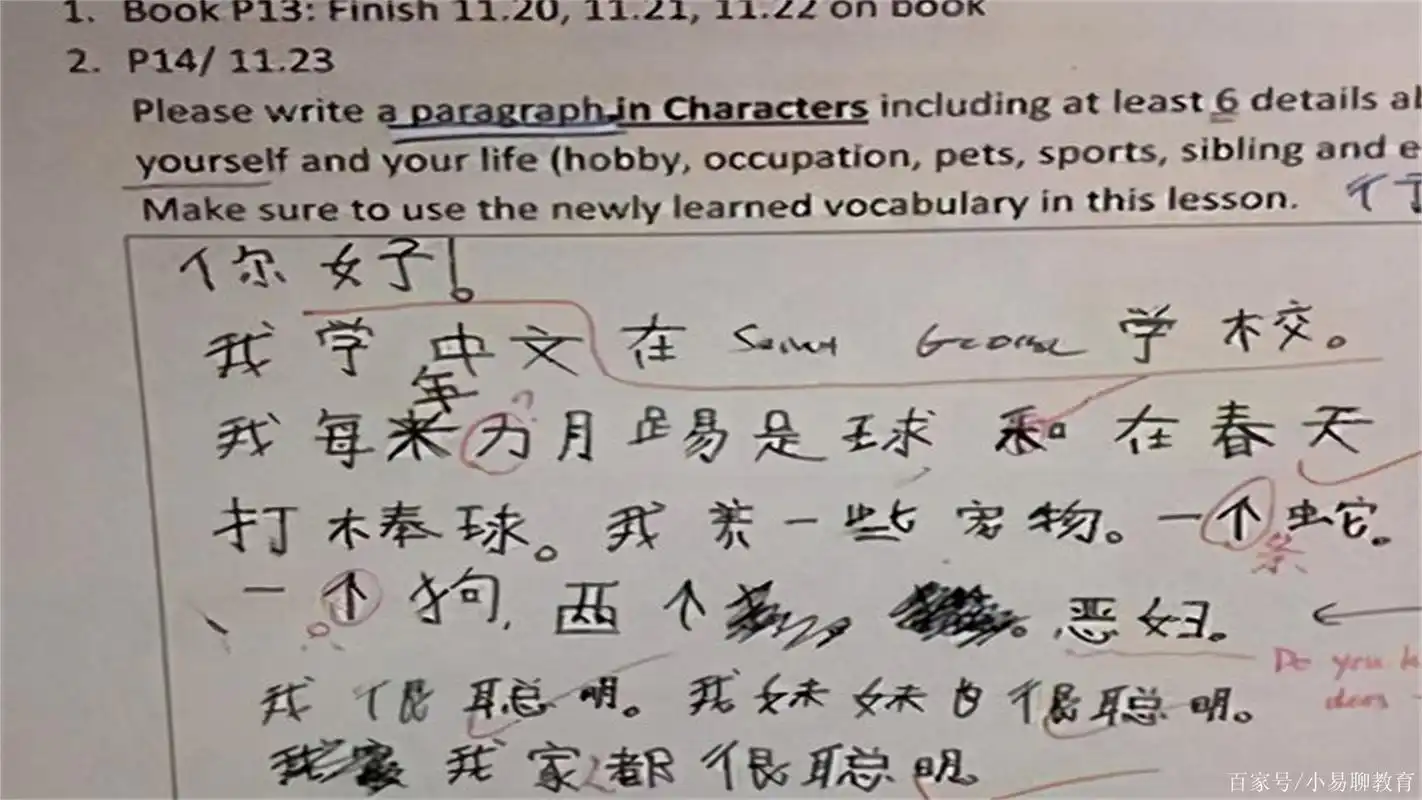 1. Book P13: Finish 11.20, 11.21, 11.22 on book
2. P14/ 11.23
Please write a paragraph in Characters including at least 6 details
yourself and your life (hobby, occupation, pets, sports, sibling and
Make sure to use the newly learned vocabulary in this lesson.
你 好!
我 学 中 文 在 学 校。
年
我 每 来 为 月 踢 是 球 和 在 春 天
?
打 棒 球。 我 养 一 些 宠 物。 一 个 蛇。
条
一 个 狗, 两 个 恶 妇。
Do you
我 很 聪 明。 我 妹 妹 也 很 聪 明。
我 家 都 很 聪 明。
人
百家号/小易聊教育